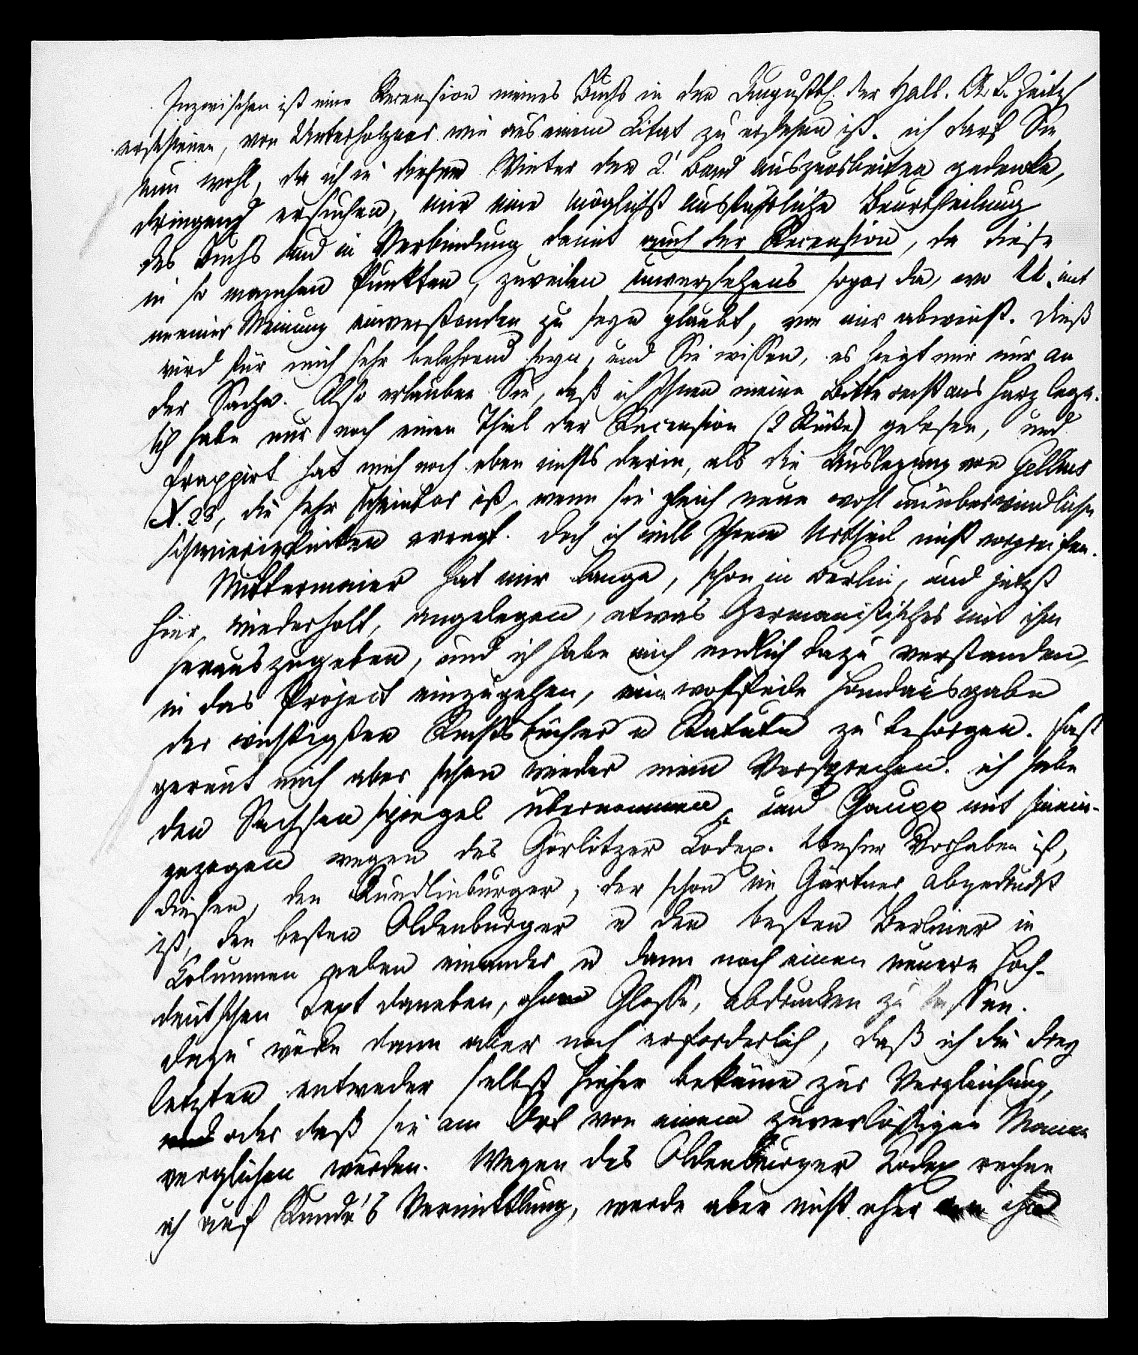 Inzwischen ist eine Recension meines Buchs in den Augustbl. der Hall. A. L. Zeitg
erschienen, von Unterholzner wie aus einem Citat zu ersehen ist. ich darf Sie
nun wohl, da ich in diesem Winter den 2t Band auszuarbeiten gedenke,
dringend ersuchen, mir eine möglichst ausführliche Beurtheilung
des Buchs und in Verbindung damit auch der Recension, da diese
in so manchen Punkten, zuweilen unversehens sogar da, wo U. mit
meiner Meinung einverstanden zu seyn glaubt, von mir abweicht. Dieß
wird für mich sehr belehrend seyn, und Sie wissen, es liegt mir nur an
der Sache. Also erlauben Sie, daß ich Ihnen meine Bitte recht ans Herz lege.
Ich habe nur noch einen Theil der Recension (2 Stücke) gelesen, und
frappirt hat mich noch eben nichts darin, als die Auslegung von Gellius
N. 23, die sehr scheinbar ist, wenn sie gleich neue wohl unüberwindliche
Schwierigkeiten erregt. Doch ich will Ihrem Urtheil nicht vorgreifen.
Mittermaier hat mir lange, schon in Berlin, und jetzt
hier wiederholt, angelegen, etwas Germanistisches mit ihm
herauszugeben, und ich habe mich endlich dazu verstanden,
in das Project einzugehen, eine wohlfeile Handausgabe
der wichtigsten Rechtsbücher u Statute zu besorgen. Fast
gereut mich aber schon wieder mein Versprechen. ich habe
den Sachsenspiegel übernommen, und Gaupp mit hinein-
gezogen wegen des Görlitzer Codex. Unser Vorhaben ist,
diesen, den Quedlinburger, der schon im Gärtner abgedruckt
ist, den besten Oldenburger u den besten Berliner in
Columnen neben einander u dann noch einen neuern hoch-
deutschen Text daneben, ohne Glosse, abdrucken zu lassen.
dazu wäre dann aber noch erforderlich, daß ich die drey
letzten entweder selbst hieher bekäme zur Vergleichung,
oder daß sie am Ort von einem zuverlässigen Manne
verglichen würden. Wegen des Oldenburger Codex rechne
ich auf Runde's Vermittlung, werde aber nicht eher an ihn